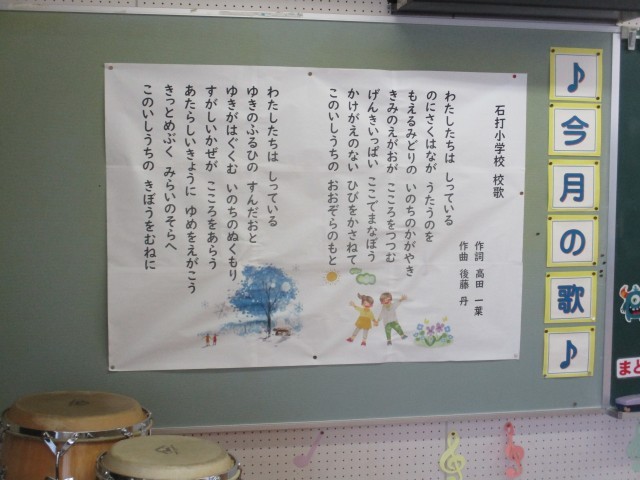 石打小学校 校歌
作詞 高田 一葉
作曲 後藤 丹
わたしたちは しっている
のにさくはなが うたうのを
もえるみどりの いのちのかがやき
きみのえがおが こころをつつむ
げんきいっぱい ここでまなぼう
かけがえのない ひびをかさねて
このいしうちの おおぞらのもと
わたしたちは しっている
ゆきのふるひの すんだおと
ゆきがはぐくむ いのちのぬくもり
すがしいかぜが こころをあらう
あたらしいきょうに ゆめをえがこう
きっとめぶく みらいのそらへ
このいしうちの きぼうをむねに
♪今月の歌♪
まと